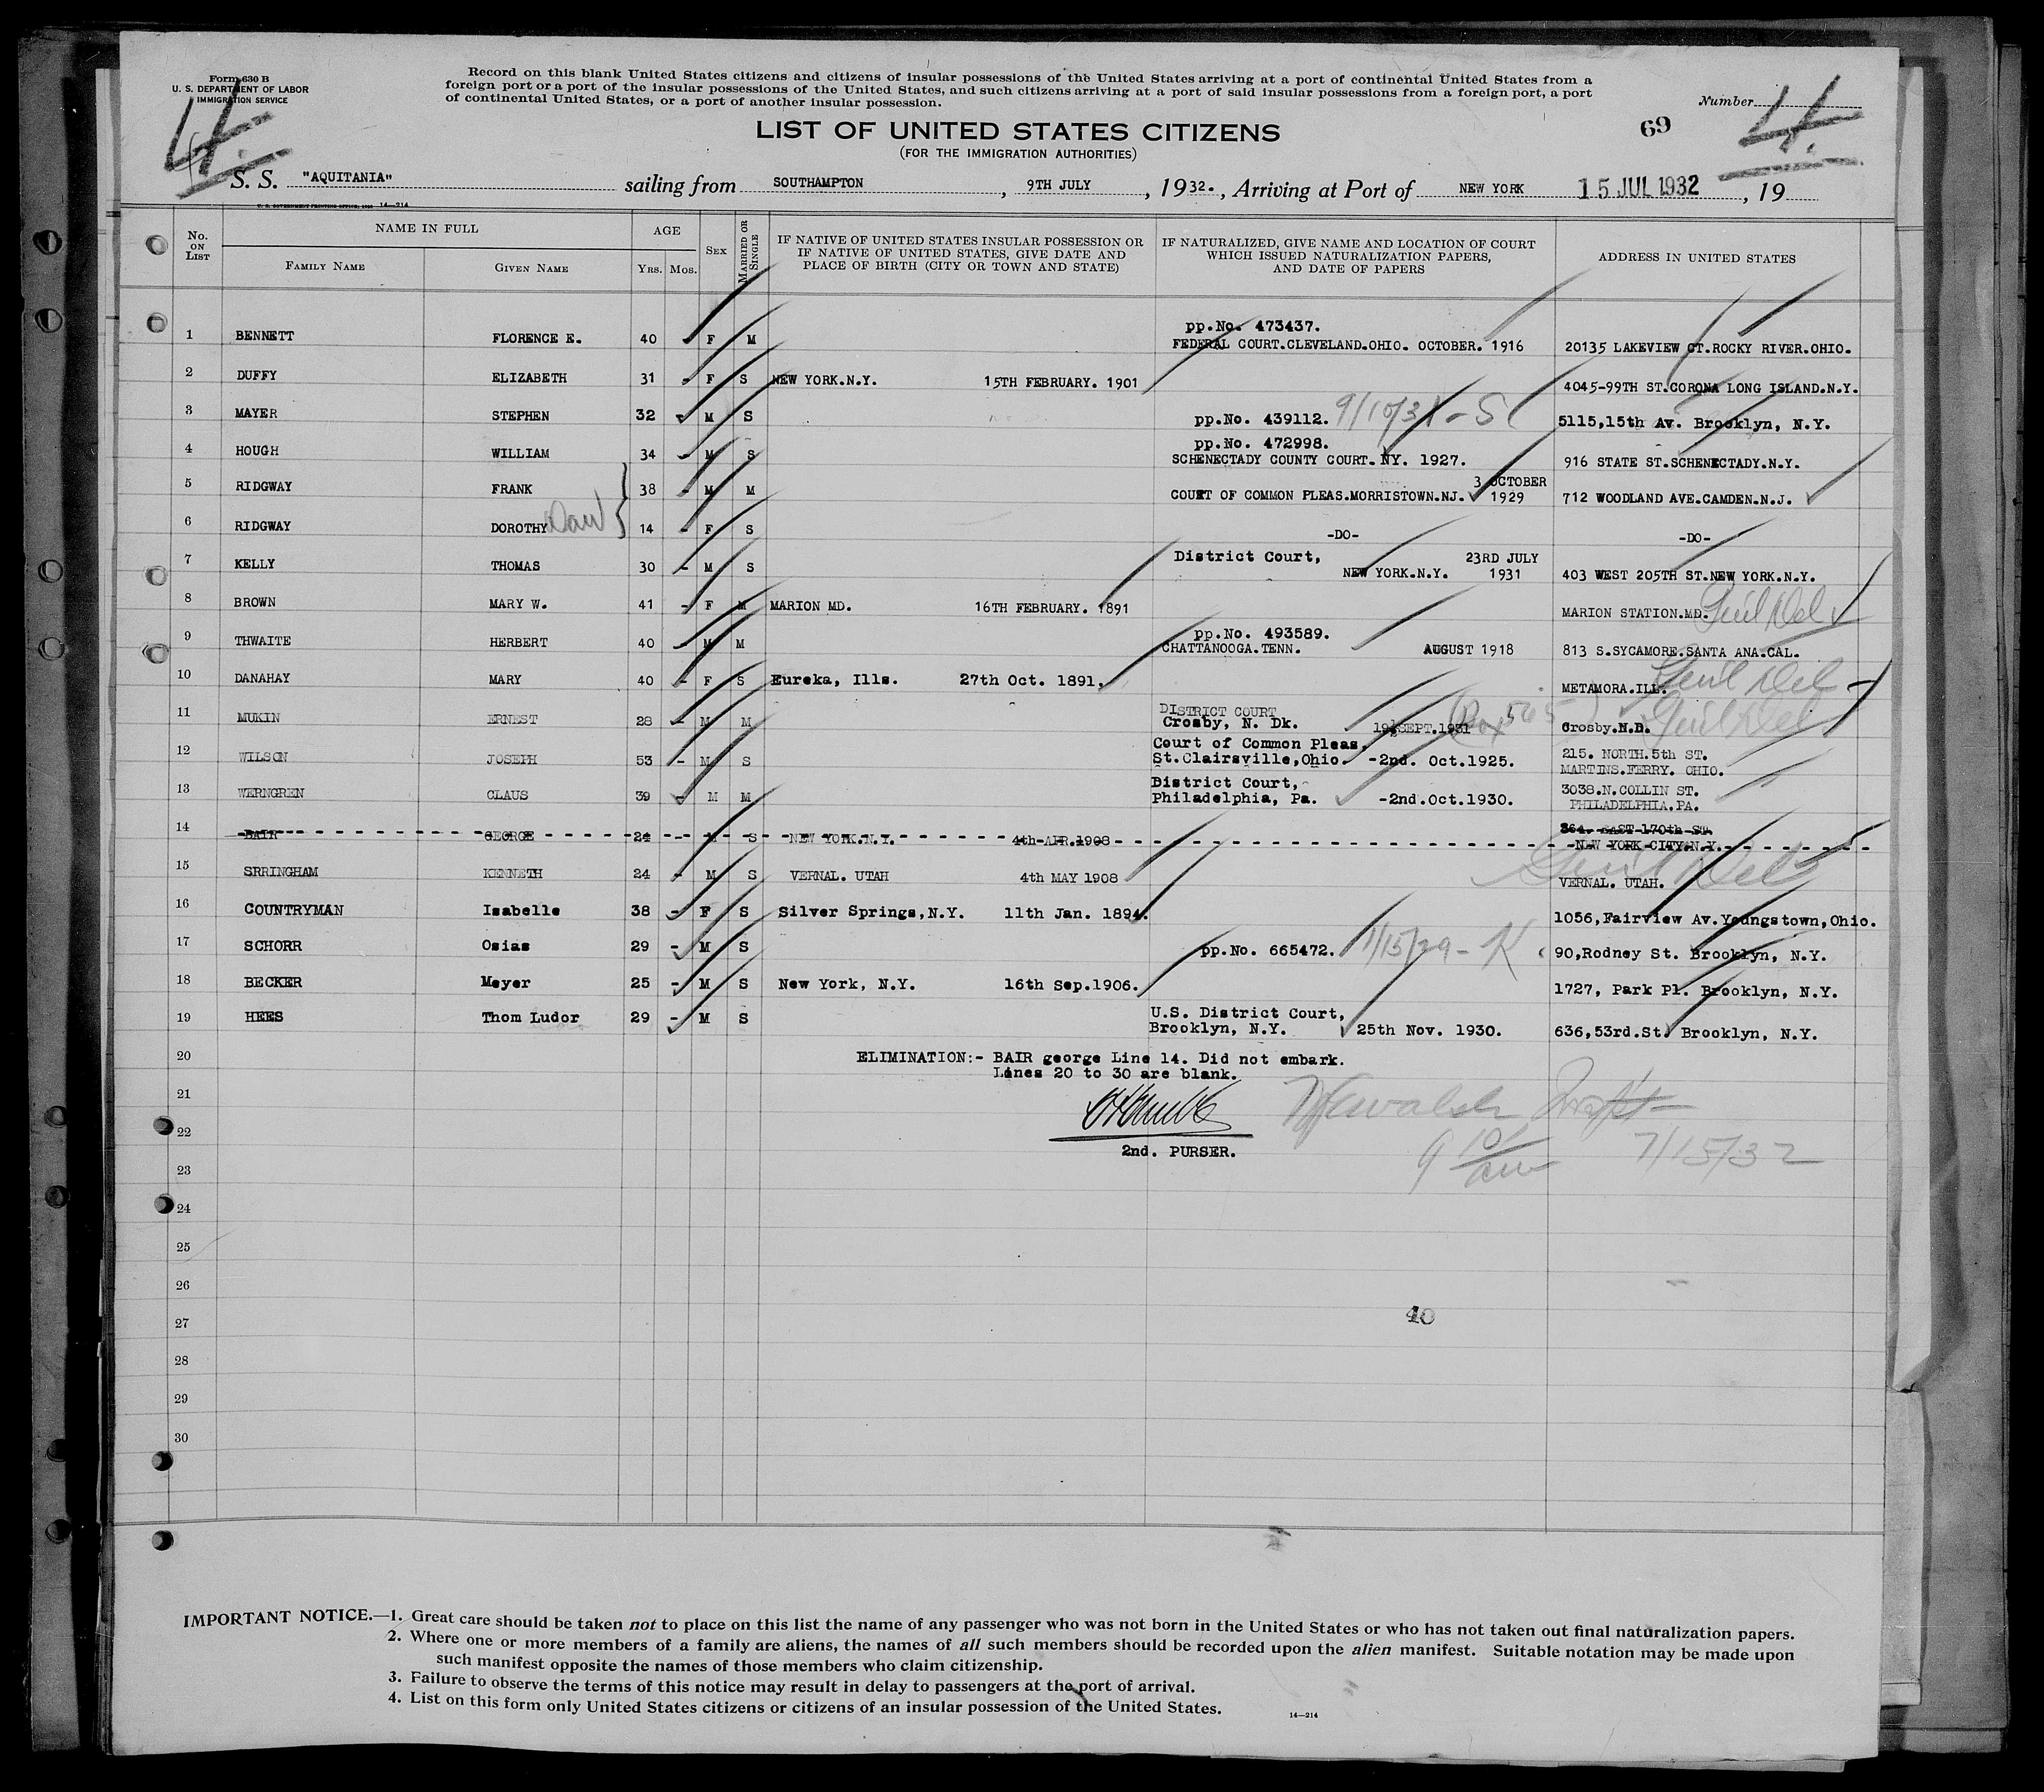 Form 630 B
U. S. DEPARTMENT OF LABOR
IMMIGRATION SERVICE
Record on this blank United States citizens and citizens of insular possessions of the United States arriving at a port of continental United States from a
foreign port or a port of the insular possessions of the United States, and such citizens arriving at a port of said insular possessions from a foreign port, a port
of continental United States, or a port of another insular possession.
Number
4
4.
69
LIST OF UNITED STATES CITIZENS
(FOR THE IMMIGRATION AUTHORITIES)
S. S. "AQUITANIA" sailing from SOUTHAMPTON, 9TH JULY, 1932., Arriving at Port of NEW YORK 15 JUL 1932, 19
14—214
No. ON LIST
NAME IN FULL
FAMILY NAME GIVEN NAME
AGE
YRS. MOS.
SEX
MARRIED OR SINGLE
IF NATIVE OF UNITED STATES INSULAR POSSESSION OR
IF NATIVE OF UNITED STATES, GIVE DATE AND
PLACE OF BIRTH (CITY OR TOWN AND STATE)
IF NATURALIZED, GIVE NAME AND LOCATION OF COURT
WHICH ISSUED NATURALIZATION PAPERS,
AND DATE OF PAPERS
ADDRESS IN UNITED STATES
pp.No. 473437.
1 BENNETT FLORENCE E. 40 - F M FEDERAL COURT.CLEVELAND.OHIO. OCTOBER. 1916 20135 LAKEVIEW CT.ROCKY RIVER.OHIO.
2 DUFFY ELIZABETH 31 - F S NEW YORK.N.Y. 15TH FEBRUARY. 1901 4045-99TH ST.CORONA LONG ISLAND.N.Y.
3 MAYER STEPHEN 32 - M S pp.No. 439112. 9/10/31 - S 5115,15th Av. Brooklyn, N.Y.
pp.No. 472998.
4 HOUGH WILLIAM 34 - M S SCHENECTADY COUNTY COURT. NY. 1927. 916 STATE ST.SCHENECTADY.N.Y.
3 OCTOBER
5 RIDGWAY FRANK 38 - M M COURT OF COMMON PLEAS.MORRISTOWN.NJ. 1929 712 WOODLAND AVE.CAMDEN.N.J.
6 RIDGWAY DOROTHY Dau 14 - F S -DO- -DO-
District Court, 23RD JULY
7 KELLY THOMAS 30 - M S NEW YORK.N.Y. 1931 403 WEST 205TH ST.NEW YORK.N.Y.
8 BROWN MARY W. 41 - F M MARION MD. 16TH FEBRUARY. 1891 MARION STATION.MD. Genl Del
pp.No. 493589.
9 THWAITE HERBERT 40 - M M CHATTANOOGA.TENN. AUGUST 1918 813 S.SYCAMORE.SANTA ANA.CAL.
10 DANAHAY MARY 40 - F S Eureka, Ills. 27th Oct. 1891. METAMORA.ILL. Genl Del -
DISTRICT COURT
11 MUKIN ERNEST 28 - M M Crosby, N. Dk. 19 SEPT.1931 (Box 565) Crosby.N.D. Genl Del
Court of Common Pleas,
12 WILSON JOSEPH 53 - M S St.Clairsville,Ohio. -2nd. Oct.1925. 215. NORTH.5th ST.
MARTINS.FERRY. OHIO.
District Court,
13 WERNGREN CLAUS 39 - M M Philadelphia, Pa. -2nd.Oct.1930. 3038.N.COLLIN ST.
PHILADELPHIA.PA.
14 BAIR GEORGE 24 - M S NEW YORK.N.Y. 4th-APR.1908 264. EAST 170th ST.
NEW YORK CITY.N.Y.
15 SRRINGHAM KENNETH 24 - M S VERNAL. UTAH 4th MAY 1908 VERNAL. UTAH. Genl Del
16 COUNTRYMAN Isabelle 38 - F S Silver Springs,N.Y. 11th Jan. 1894. 1056,Fairview Av.Youngstown,Ohio.
17 SCHORR Osias 29 - M S pp.No. 665472. 1/15/29 - K 90,Rodney St. Brooklyn, N.Y.
18 BECKER Meyer 25 - M S New York, N.Y. 16th Sep.1906. 1727, Park Pl. Brooklyn, N.Y.
U.S. District Court,
19 HEES Thom Ludor 29 - M S Brooklyn, N.Y. 25th Nov. 1930. 636,53rd.St. Brooklyn, N.Y.
20 ELIMINATION:- BAIR george Line 14. Did not embark.
Lines 20 to 30 are blank.
21
22
2nd. PURSER.
9 10/am 7/15/32
23
24
25
26
27
40
28
29
30
IMPORTANT NOTICE.—1. Great care should be taken not to place on this list the name of any passenger who was not born in the United States or who has not taken out final naturalization papers.
2. Where one or more members of a family are aliens, the names of all such members should be recorded upon the alien manifest. Suitable notation may be made upon
such manifest opposite the names of those members who claim citizenship.
3. Failure to observe the terms of this notice may result in delay to passengers at the port of arrival.
4. List on this form only United States citizens or citizens of an insular possession of the United States.
14—214